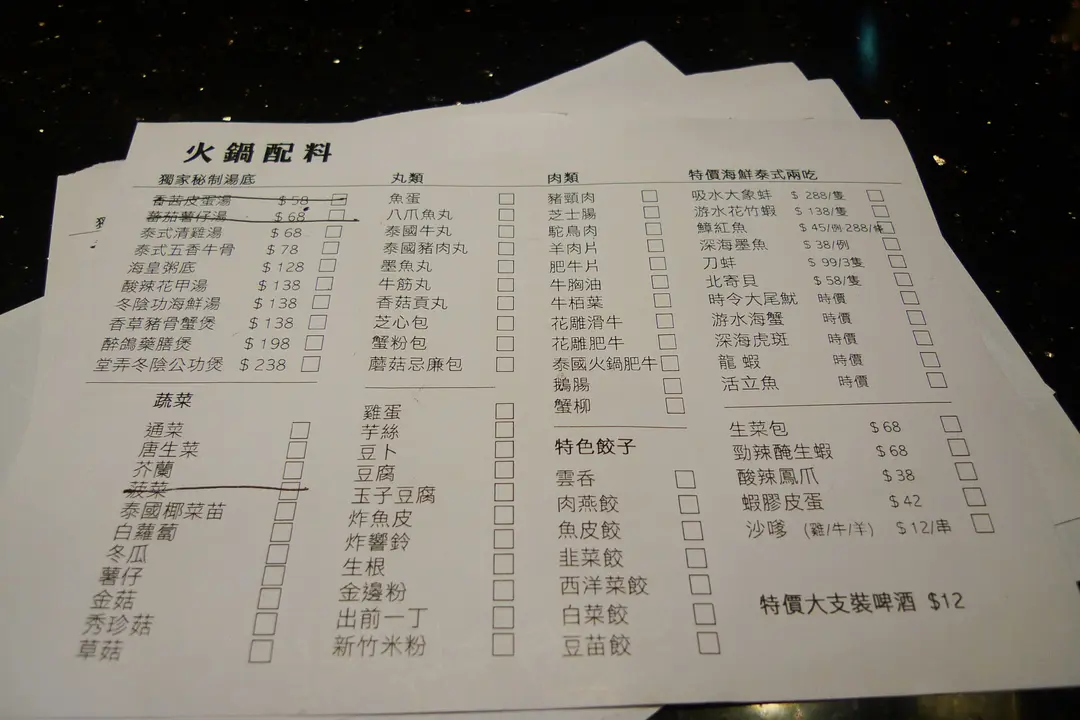 火鍋配料
獨家秘制湯底
香茜皮蛋湯 $58
蕃茄薯仔湯 $68
泰式清雞湯 $68
泰式五香牛骨 $78
海皇粥底 $128
酸辣花甲湯 $138
冬陰功海鮮湯 $138
香草豬骨蟹煲 $138
醉鴿藥膳煲 $198
堂弄冬陰公功煲 $238
蔬菜
通菜
唐生菜
芥蘭
菠菜
泰國椰菜苗
白蘿蔔
冬瓜
薯仔
金菇
秀珍菇
草菇
丸類
魚蛋
八爪魚丸
泰國牛丸
泰國豬肉丸
墨魚丸
牛筋丸
香菇貢丸
芝心包
蟹粉包
蘑菇忌廉包
雞蛋
芋絲
豆卜
豆腐
玉子豆腐
炸魚皮
炸響鈴
生根
金邊粉
出前一丁
新竹米粉
肉類
豬頸肉
芝士腸
駝鳥肉
羊肉片
肥牛片
牛胸油
牛栢葉
花雕滑牛
花雕肥牛
泰國火鍋肥牛
鵝腸
蟹柳
特色餃子
雲吞
肉燕餃
魚皮餃
韭菜餃
西洋菜餃
白菜餃
豆苗餃
特價海鮮泰式兩吃
吸水大象蚌 $288/隻
游水花竹蝦 $138/隻
鱆紅魚 $45/例 288/條
深海墨魚 $38/例
刀蚌 $99/3隻
北寄貝 $58/隻
時令大尾魷 時價
游水海蟹 時價
深海虎斑 時價
龍蝦 時價
活立魚 時價
生菜包 $68
勁辣醃生蝦 $68
酸辣鳳爪 $38
蝦膠皮蛋 $42
沙嗲 (雞/牛/羊) $12/串
特價大支裝啤酒 $12